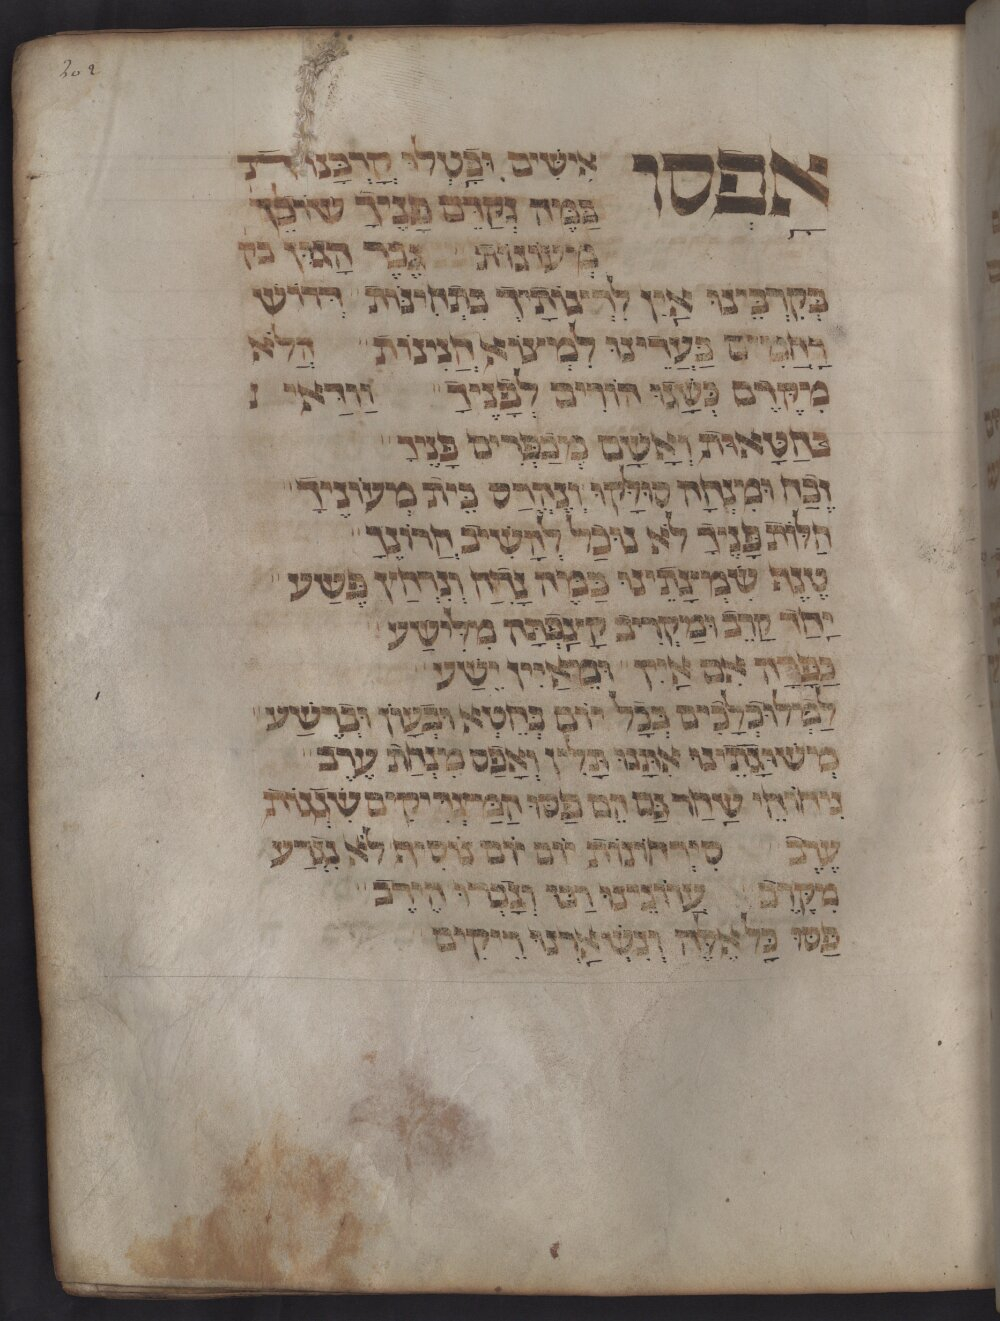 202
אָפְסוּ אִישִׁים וּבָטְלוּ קָרְבָּנוֹת
בַּמֶּה נְקַדֵּם פָּנֶיךָ שׁוֹכֵן
מְעוֹנוֹת גֶּבֶר הָגוּן
בְּקִרְבֵּינוּ אֵין לְרַצּוֹתָיךְ בִּתְחִינּוֹת דְּרוֹשׁ
רַחֲמִים בַּעֲדֵינוּ לִמְצוֹא חֲנִינוֹת הֲלֹא
מִקֶּדֶם כְּשָׁגוּ הוֹרִים לְפָנֶיךָ וַוַדַּאי
בְּחַטָּאוֹת וְאָשָׁם מְכַפְּרִים פָּנֶיךָ
זֶבַח וּמִנְחָה סוּלָּקוּ וְנֶהֱרַס בֵּית מְעוֹנֶיךָ
חַלּוֹת פָּנֶיךָ לֹא נוּכַל לְהָשִׁיב חֲרוֹנֶךָ
טֶנֶף שִׁמְצָתֵינוּ בַּמֶּה נָדִיחַ וְנִרְחַץ פֶּשַׁע
יַחַד קָרֵב וּמַקְרִיב קָצָפְתָּה מִלִּישַׁע
כַּפָּרָה אִם אַיִן וּמֵאַיִן יֶשַׁע
לִכְלוּכְלָכִים בְּכָל יוֹם בְּחֵטְא וּבְעָוֹן וּבְרֶשַׁע
מְשׁוּגָתֵינוּ אִתָּנוּ תָּלִין וְאָפֵס מִנְחַת עֶרֶב
נִיחוֹחֵי שַׁחַר גַּם הֵם פַּסּוּ הַמַּצְדִּיקִים שִׁגְגוֹת
עֶרֶב סִירְחוֹנוֹת יוֹם יוֹם נוֹסִיף לֹא נִגְרַע
מִקֶּרֶב עֲוֹנֵינוּ רַבּוּ וְגָבְרוּ הֶירֶב
פַּסּוּ כָּל אֵלֶּה וְנִשְׁאַרְנוּ רֵיקִים